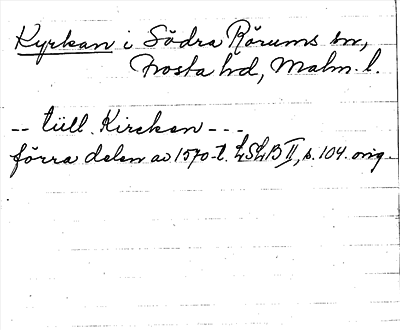 Kyrkan i Södra Rörums sn,
Frosta hd, Malm. l.
-- tüll Kircken ---
förra delen av 1570-t. LSLB II, s. 104. orig.